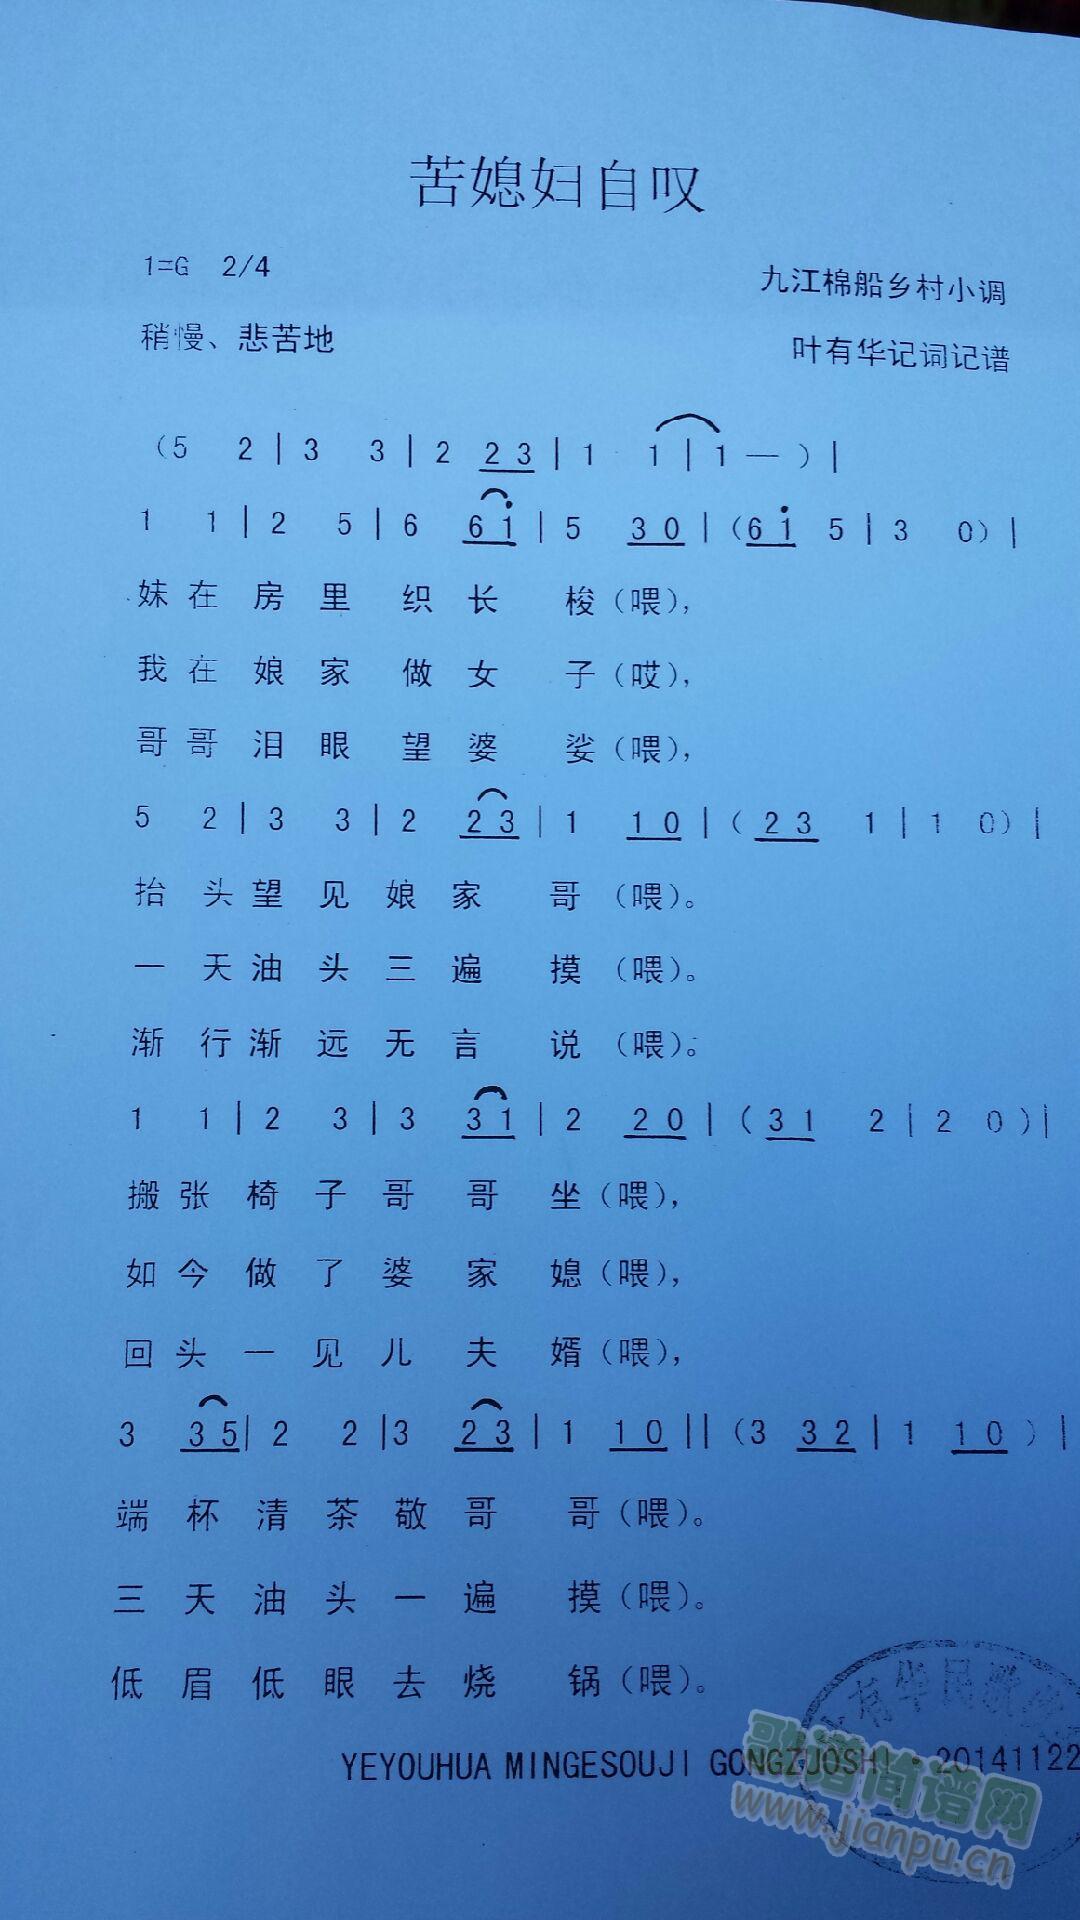 苦媳妇自叹
1=G 2/4
九江棉船乡村小调
稍慢、悲苦地
叶有华记词记谱
(5 2 | 3 3 | 2 23 | 1 1 | 1 — ) |
1 1 | 2 5 | 6 6i | 5 30 | (6i 5 | 3 0) |
妹在房里织长梭(喂),
我在娘家做女子(哎),
哥哥泪眼望婆娑(喂),
5 2 | 3 3 | 2 23 | 1 10 | ( 23 1 | 1 0) |
抬头望见娘家哥(喂)。
一天油头三遍摸(喂)。
渐行渐远无言说(喂)。
1 1 | 2 3 | 3 31 | 2 20 | ( 31 2 | 2 0 ) |
搬张椅子哥哥坐(喂),
如今做了婆家媳(喂),
回头一见儿夫婿(喂),
3 35 | 2 2 | 3 23 | 1 10 || (3 32 | 1 10 ) |
端杯清茶敬哥哥(喂)。
三天油头一遍摸(喂)。
低眉低眼去烧锅(喂)。
有华民歌
YEYOUHUA MINGESOUJI GONGZUOSHI·20141122
歌谱简谱网
www.jianpu.cn